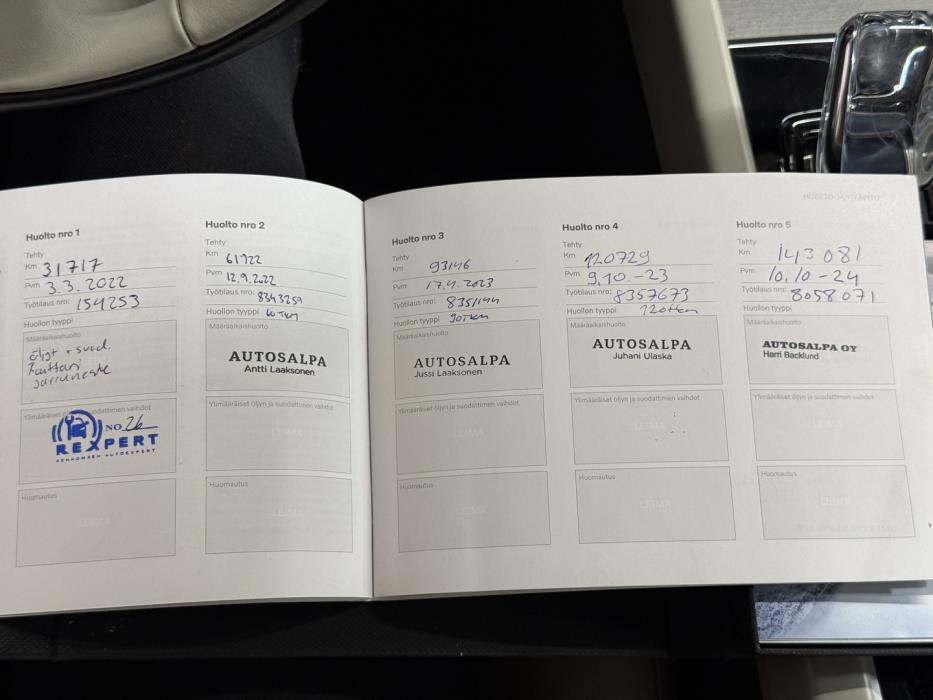 HUOLTO JA YLLÄPITO
Huolto nro 1
Tehty
Km 31717
Pvm 3.3.2022
Työtilaus nro: 154253
Huollon tyyppi
Määräaikaishuolto
öljyt + suod.
Raittari
jarruneste
Ylimääräiset öljyn ja suodattimen vaihdot
NO 26
REXPERT
Huomautus
LEIMA
Huolto nro 2
Tehty
Km 61922
Pvm 12.9.2022
Työtilaus nro: 8343259
Huollon tyyppi 60 Tkm
Määräaikaishuolto
AUTOSALPA
Antti Laaksonen
Ylimääräiset öljyn ja suodattimen vaihdot
LEIMA
Huomautus
LEIMA
Huolto nro 3
Tehty
Km 93146
Pvm 17.4.2023
Työtilaus nro: 8351144
Huollon tyyppi 90Tkm
Määräaikaishuolto
AUTOSALPA
Jussi Laaksonen
Ylimääräiset öljyn ja suodattimen vaihdot
LEIMA
Huomautus
LEIMA
Huolto nro 4
Tehty
Km 120729
Pvm 9.10.-23
Työtilaus nro: 8357673
Huollon tyyppi 120tkm
Määräaikaishuolto
AUTOSALPA
Juhani Ulaska
Ylimääräiset öljyn ja suodattimen vaihdot
LEIMA
Huomautus
LEIMA
Huolto nro 5
Tehty
Km 143 081
Pvm 10.10-24
Työtilaus nro: 8058071
Huollon tyyppi
Määräaikaishuolto
AUTOSALPA OY
Harri Backlund
Ylimääräiset öljyn ja suodattimen vaihdot
LEIMA
Huomautus
LEIMA